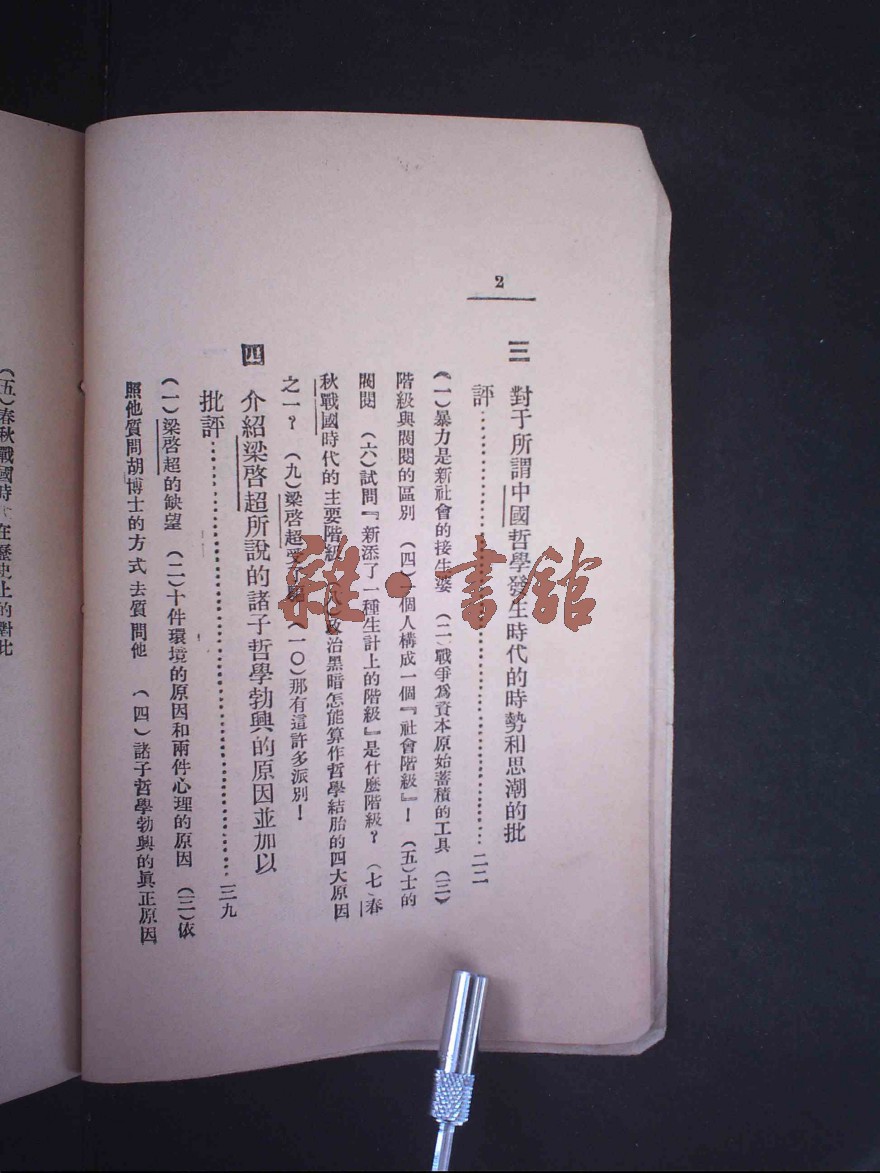 2
三 對于所謂中國哲學發生時代的時勢和思潮的批
評…………………………二二
(一)暴力是新社會的接生婆 (二)戰爭爲資本原始蓄積的工具 (三)
階級與閥閱的區別 (四)一個人構成一個『社會階級』! (五)士的
閥閱 (六)試問『新添了一種生計上的階級』是什麽階級? (七)春
秋戰國時代的主要階級 (八)政治黑暗怎能算作哲學結胎的四大原因
之一? (九)梁啓超受 (一〇)那有這許多派別!
四 介紹梁啓超所說的諸子哲學勃興的原因並加以
批評…………………………三九
(一)梁啓超的缺望 (二)十件環境的原因和兩件心理的原因 (三)依
照他質問胡博士的方式去質問他 (四)諸子哲學勃興的眞正原因
(五)春秋戰國時 在歷史上的對比
雜·書館